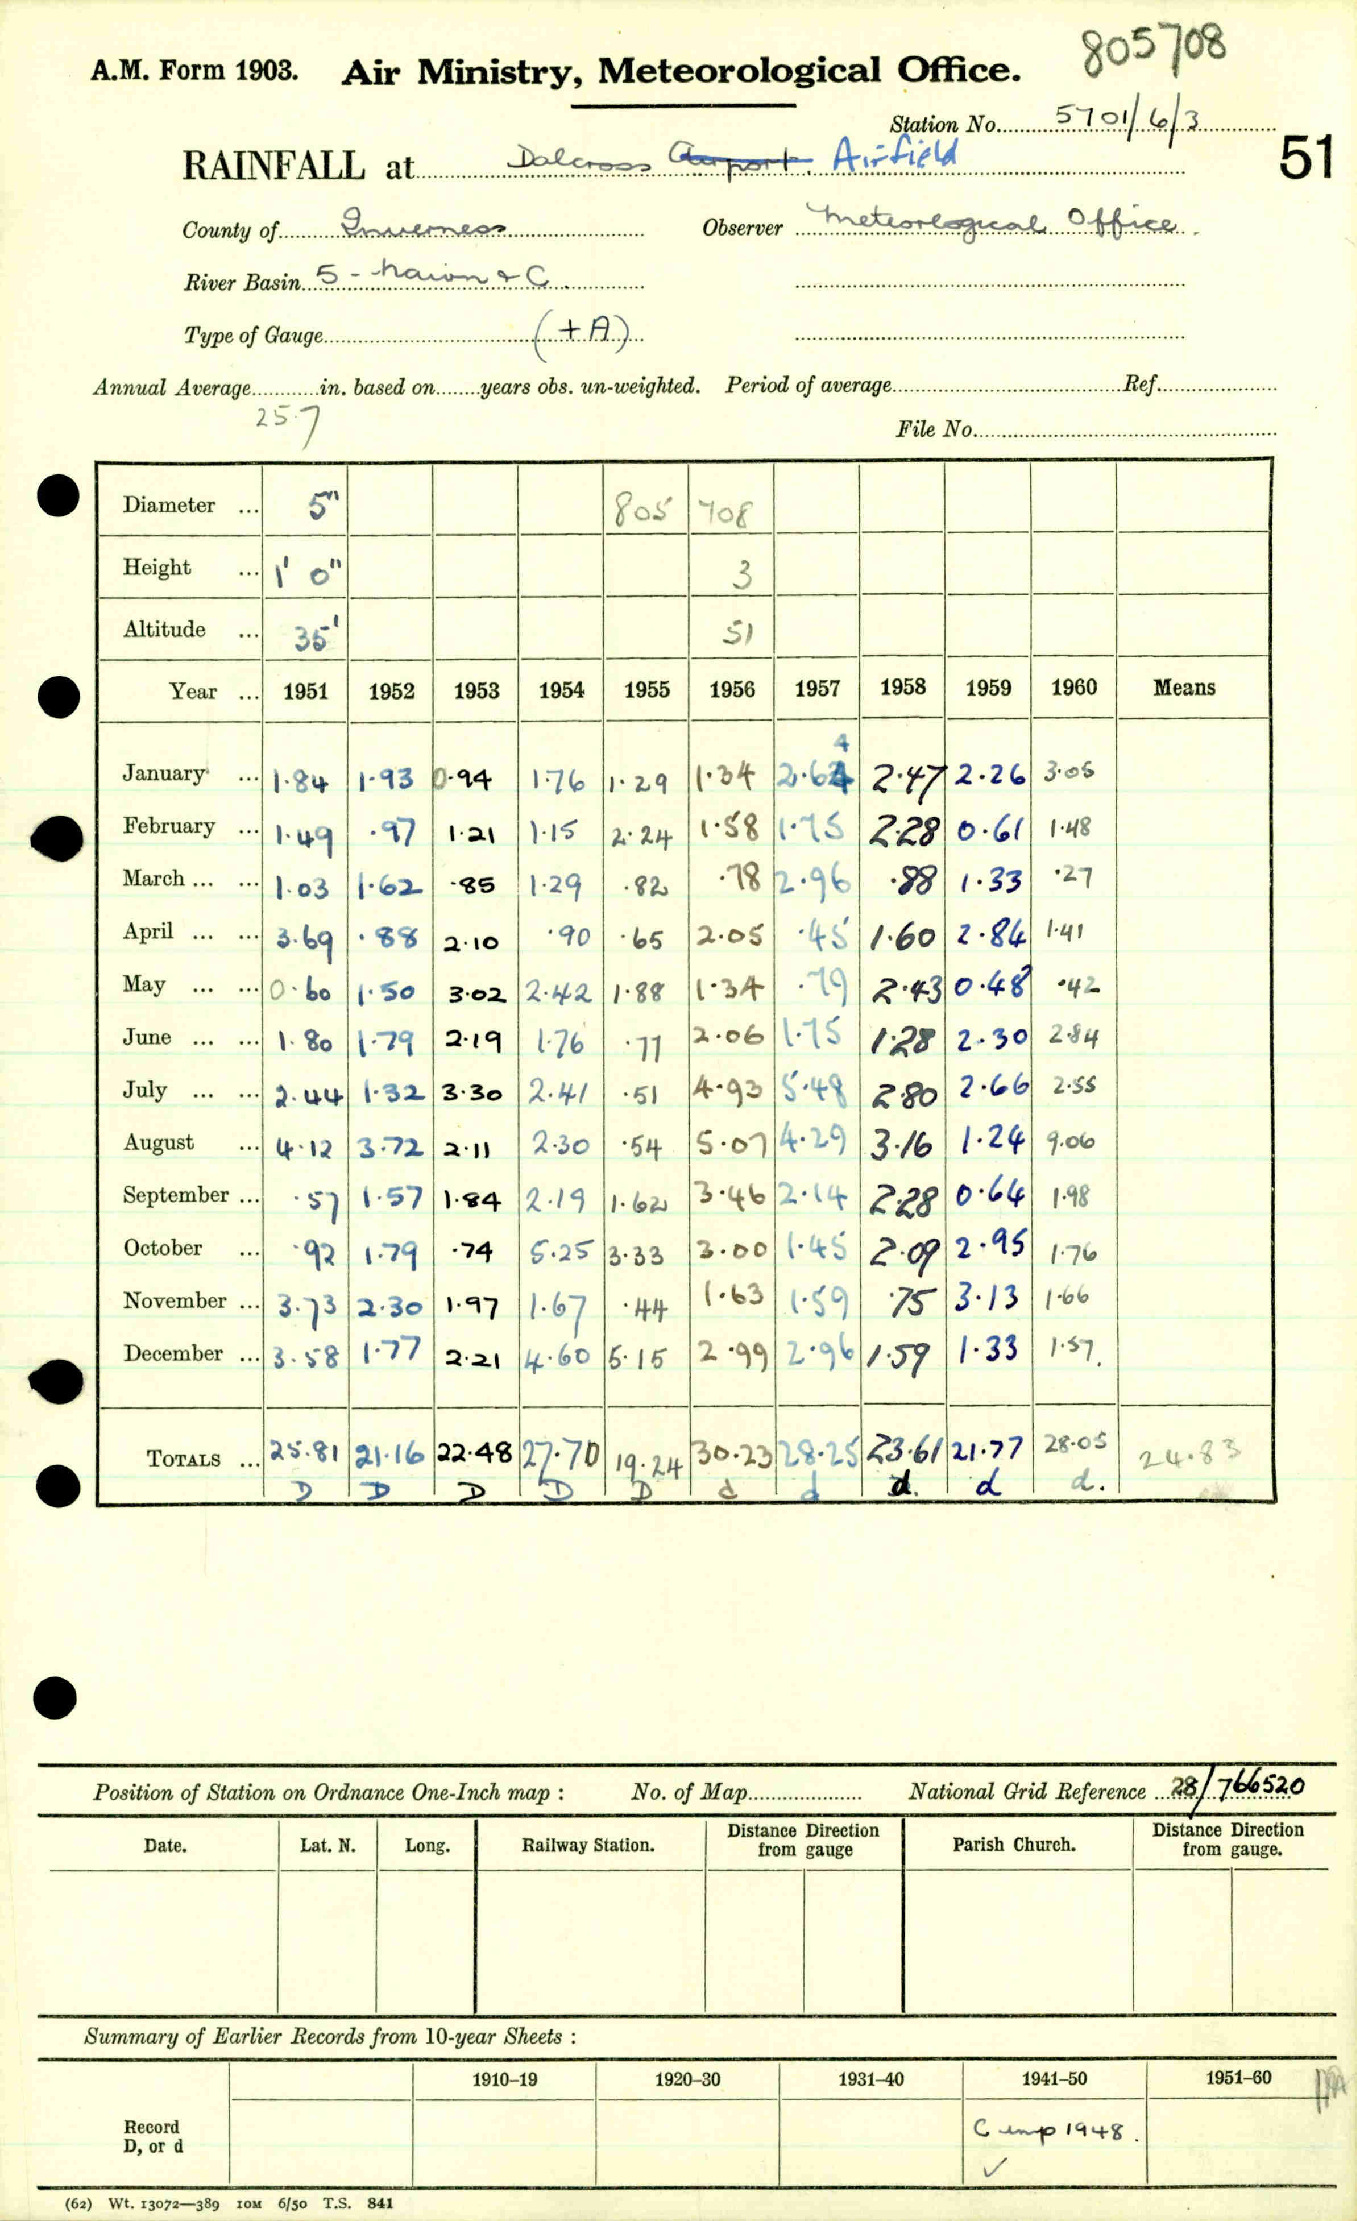 805708
A.M. Form 1903. Air Ministry, Meteorological Office.
Station No. 5701/6/3
51
RAINFALL at Dalcross Airport. Airfield
County of Inverness Observer Meteorlogical Office.
River Basin 5 - Nairn & C
Type of Gauge (+A)
Annual Average in. based on years obs. un-weighted. Period of average Ref.
25.7
File No.
Diameter ... 5" 805 708
Height ... 1' 0" 3
Altitude ... 35' 51
Year ... 1951 1952 1953 1954 1955 1956 1957 1958 1959 1960 Means
4
January ... 1.84 1.93 0.94 1.76 1.29 1.34 2.64 2.47 2.26 3.05
February ... 1.49 .97 1.21 1.15 2.24 1.58 1.75 2.28 0.61 1.48
March ... ... 1.03 1.62 .85 1.29 .82 .78 2.96 .88 1.33 .27
April ... ... 3.69 .88 2.10 .90 .65 2.05 .45 1.60 2.84 1.41
May ... ... 0.60 1.50 3.02 2.42 1.88 1.34 .79 2.43 0.48 .42
June ... ... 1.80 1.79 2.19 1.76 .77 2.06 1.75 1.28 2.30 2.84
July ... ... 2.44 1.32 3.30 2.41 .51 4.93 5.48 2.80 2.66 2.55
August ... 4.12 3.72 2.11 2.30 .54 5.07 4.29 3.16 1.24 9.06
September ... .57 1.57 1.84 2.19 1.62 3.46 2.14 2.28 0.64 1.98
October ... .92 1.79 .74 5.25 3.33 3.00 1.45 2.09 2.95 1.76
November ... 3.73 2.30 1.97 1.67 .44 1.63 1.59 .75 3.13 1.66
December ... 3.58 1.77 2.21 4.60 5.15 2.99 2.96 1.59 1.33 1.57.
TOTALS ... 25.81 21.16 22.48 27.70 19.24 30.23 28.25 23.61 21.77 28.05 24.83
D D D D D d d d. d d.
Position of Station on Ordnance One-Inch map : No. of Map National Grid Reference 28/766520
Date. Lat. N. Long. Railway Station. Distance Direction from gauge Parish Church. Distance Direction from gauge.
Summary of Earlier Records from 10-year Sheets :
1910–19 1920–30 1931–40 1941–50 1951–60
Record D, or d C 1948.
✓
(62) Wt. 13072—389 10M 6/50 T.S. 841